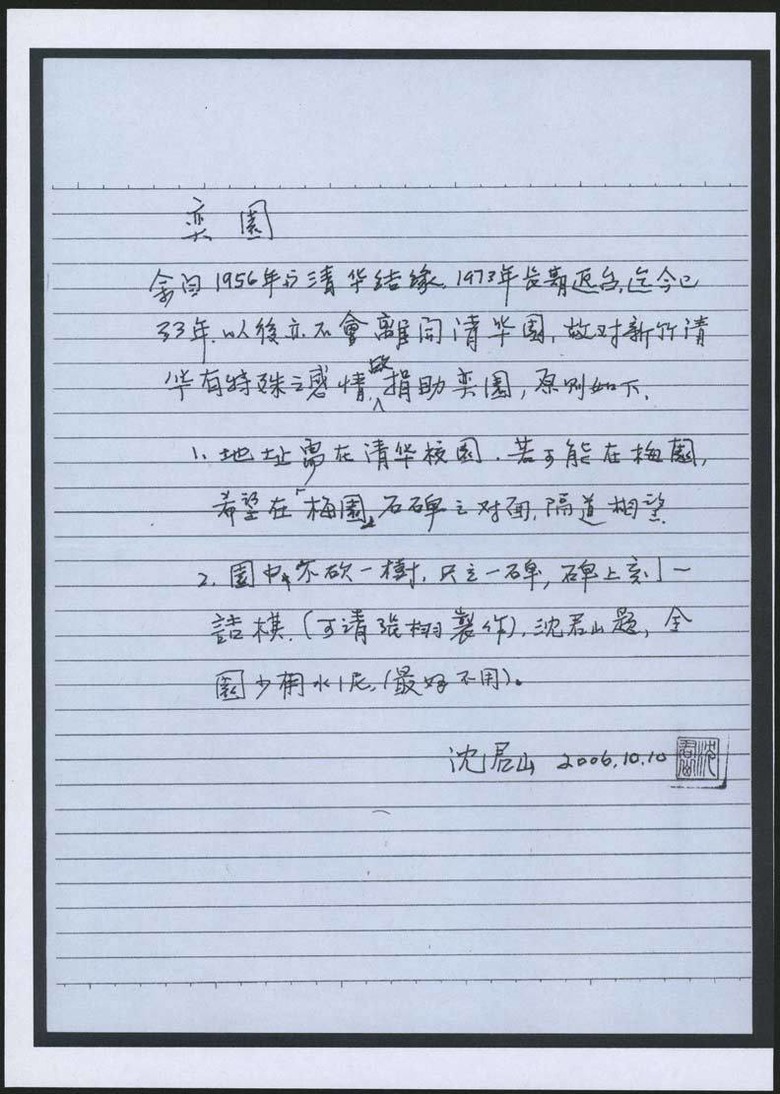 奕園
余自1956年与清华结缘,1973年長期返台,迄今已
33年,以後亦不會離開清华園,故对新竹清
华有特殊之感情,故捐助奕園,原則如下,
1. 地址需在清华校园.若可能在梅園,
希望在「梅園」石碑之对面,隔道相望
2. 園中不砍一樹,只立一碑,碑上刻一
詰棋,(可請張栩製作),沈君山題,全
園少用水泥,(最好不用)。
沈君山 2006.10.10